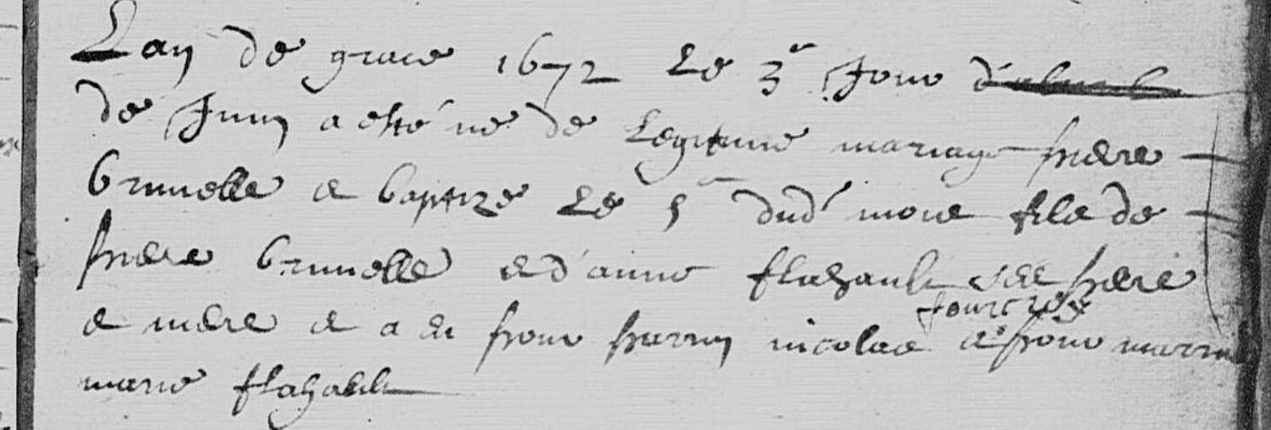 Lan de grace 1672 Le 3e Jour
de Juin a esté né de Legitime mariage pierre
brunelle e baptizé Le 5e dud mois fils de
pierre brunelle e d'anne flahault ses pere
e mere e a eu pour parrin nicolas fourcroy e pour marrine
marie flahault